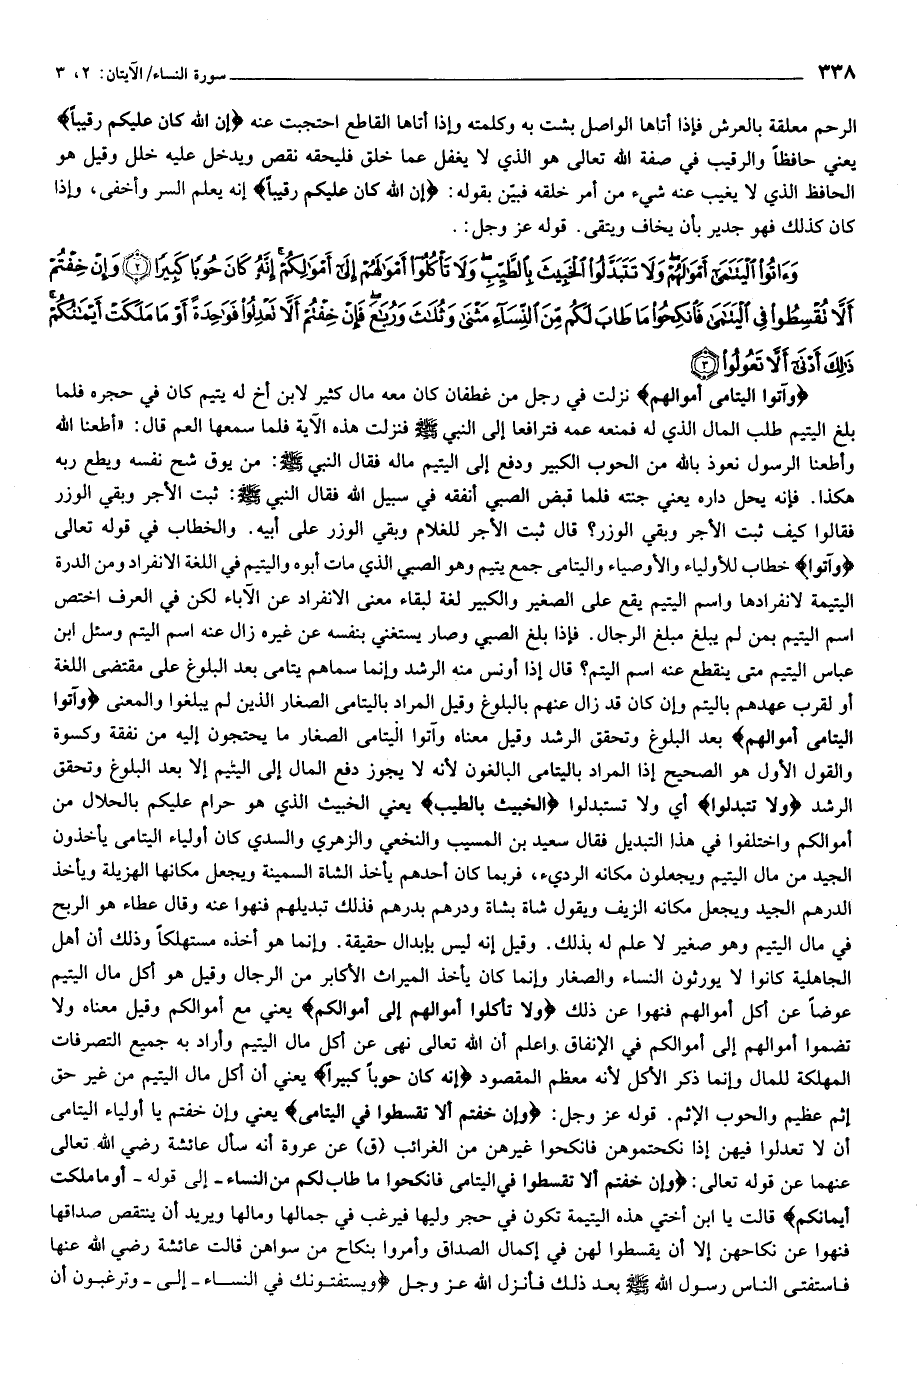 ٣٣٨ سورة النساء/ الآيتان: ٢، ٣
الرحم معلقة بالعرش فإذا أتاها الواصل بشت به وكلمته وإذا أتاها القاطع احتجبت عنه ﴿إن الله كان عليكم رقيباً﴾
يعني حافظاً والرقيب في صفة الله تعالى هو الذي لا يغفل عما خلق فليحقه نقص ويدخل عليه خلل وقيل هو
الحافظ الذي لا يغيب عنه شيء من أمر خلقه فبيّن بقوله: ﴿إن الله كان عليكم رقيباً﴾ إنه يعلم السر وأخفى، وإذا
كان كذلك فهو جدير بأن يخاف ويتقى. قوله عز وجل: .
وَءَاتُوا۟ ٱلْيَتَـٰمَىٰٓ أَمْوَٰلَهُمْ ۖ وَلَا تَتَبَدَّلُوا۟ ٱلْخَبِيثَ بِٱلطَّيِّبِ ۖ وَلَا تَأْكُلُوٓا۟ أَمْوَٰلَهُمْ إِلَىٰٓ أَمْوَٰلِكُمْ ۚ إِنَّهُۥ كَانَ حُوبًا كَبِيرًا ﴿٢﴾ وَإِنْ خِفْتُمْ
أَلَّا تُقْسِطُوا۟ فِى ٱلْيَتَـٰمَىٰ فَٱنكِحُوا۟ مَا طَابَ لَكُم مِّنَ ٱلنِّسَآءِ مَثْنَىٰ وَثُلَـٰثَ وَرُبَـٰعَ ۖ فَإِنْ خِفْتُمْ أَلَّا تَعْدِلُوا۟ فَوَٰحِدَةً أَوْ مَا مَلَكَتْ أَيْمَـٰنُكُمْ ۚ
ذَٰلِكَ أَدْنَىٰٓ أَلَّا تَعُولُوا۟ ﴿٣﴾
﴿وآتوا اليتامى أموالهم﴾ نزلت في رجل من غطفان كان معه مال كثير لابن أخ له يتيم كان في حجره فلما
بلغ اليتيم طلب المال الذي له فمنعه عمه فترافعا إلى النبي ﷺ فنزلت هذه الآية فلما سمعها العم قال: «أطعنا الله
وأطعنا الرسول نعوذ بالله من الحوب الكبير ودفع إلى اليتيم ماله فقال النبي ﷺ: من يوق شح نفسه ويطع ربه
هكذا. فإنه يحل داره يعني جنته فلما قبض الصبي أنفقه في سبيل الله فقال النبي ﷺ: ثبت الأجر وبقي الوزر
فقالوا كيف ثبت الأجر وبقي الوزر؟ قال ثبت الأجر للغلام وبقي الوزر على أبيه. والخطاب في قوله تعالى
﴿وآتوا﴾ خطاب للأولياء والأوصياء واليتامى جمع يتيم وهو الصبي الذي مات أبوه واليتيم في اللغة الانفراد ومن الدرة
اليتيمة لانفرادها واسم اليتيم يقع على الصغير والكبير لغة لبقاء معنى الانفراد عن الآباء لكن في العرف اختص
اسم اليتيم بمن لم يبلغ مبلغ الرجال. فإذا بلغ الصبي وصار يستغني بنفسه عن غيره زال عنه اسم اليتم وسئل ابن
عباس اليتيم متى ينقطع عنه اسم اليتم؟ قال إذا أونس منه الرشد وإنما سماهم يتامى بعد البلوغ على مقتضى اللغة
أو لقرب عهدهم باليتم وإن كان قد زال عنهم بالبلوغ وقيل المراد باليتامى الصغار الذين لم يبلغوا والمعنى ﴿وآتوا
اليتامى أموالهم﴾ بعد البلوغ وتحقق الرشد وقيل معناه وآتوا اليتامى الصغار ما يحتجون إليه من نفقة وكسوة
والقول الأول هو الصحيح إذا المراد باليتامى البالغون لأنه لا يجوز دفع المال إلى اليتيم إلا بعد البلوغ وتحقق
الرشد ﴿ولا تتبدلوا﴾ أي ولا تستبدلوا ﴿الخبيث بالطيب﴾ يعني الخبيث الذي هو حرام عليكم بالحلال من
أموالكم واختلفوا في هذا التبديل فقال سعيد بن المسيب والنخعي والزهري والسدي كان أولياء اليتامى يأخذون
الجيد من مال اليتيم ويجعلون مكانه الرديء، فربما كان أحدهم يأخذ الشاة السمينة ويجعل مكانها الهزيلة ويأخذ
الدرهم الجيد ويجعل مكانه الزيف ويقول شاة بشاة ودرهم بدرهم فذلك تبديلهم فنهوا عنه وقال عطاء هو الربح
في مال اليتيم وهو صغير لا علم له بذلك. وقيل إنه ليس بإبدال حقيقة. وإنما هو أخذه مستهلكاً وذلك أن أهل
الجاهلية كانوا لا يورثون النساء والصغار وإنما كان يأخذ الميراث الأكابر من الرجال وقيل هو أكل مال اليتيم
عوضاً عن أكل أموالهم فنهوا عن ذلك ﴿ولا تأكلوا أموالهم إلى أموالكم﴾ يعني مع أموالكم وقيل معناه ولا
تضموا أموالهم إلى أموالكم في الإنفاق واعلم أن الله تعالى نهى عن أكل مال اليتيم وأراد به جميع التصرفات
المهلكة للمال وإنما ذكر الأكل لأنه معظم المقصود ﴿إنه كان حوباً كبيراً﴾ يعني أن أكل مال اليتيم من غير حق
إثم عظيم والحوب الإثم. قوله عز وجل: ﴿وإن خفتم ألا تقسطوا في اليتامى﴾ يعني وإن خفتم يا أولياء اليتامى
أن لا تعدلوا فيهن إذا نكحتموهن فانكحوا غيرهن من الغرائب (ق) عن عروة أنه سأل عائشة رضي الله تعالى
عنهما عن قوله تعالى: ﴿وإن خفتم ألا تقسطوا في اليتامى فانكحوا ما طاب لكم من النساء ـ إلى قوله ـ أو ما ملكت
أيمانكم﴾ قالت يا ابن أختي هذه اليتيمة تكون في حجر وليها فيرغب في جمالها ومالها ويريد أن ينتقص صداقها
فنهوا عن نكاحهن إلا أن يقسطوا لهن في إكمال الصداق وأمروا بنكاح من سواهن قالت عائشة رضي الله عنها
فاستفتى الناس رسول الله ﷺ بعد ذلك فأنزل الله عز وجل ﴿ويستفتونك في النساء ـ إلى ـ وترغبون أن